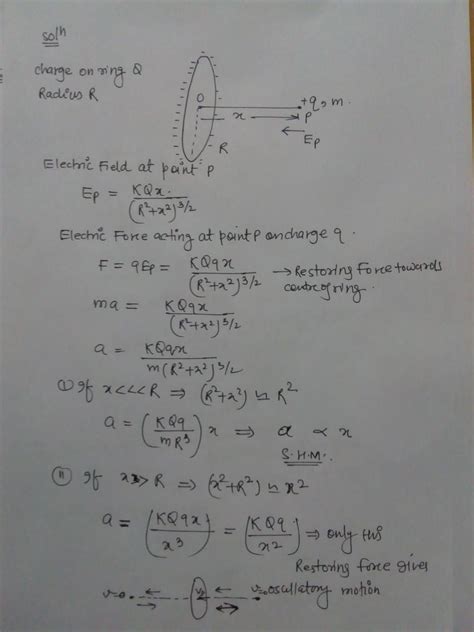 Solⁿ
charge on ring Q
Radius R
O
+q, m.
x
P
Ep
R
Electric Field at point p
Ep = KQx / (R²+x²)^3/2
Electric Force acting at point P on charge q.
F = qEp = KQqx / (R²+x²)^3/2 → Restoring Force towards
centre of ring.
ma = KQqx / (R²+x²)^3/2
a = KQqx / m(R²+x²)^3/2
(I) If x<<<R ⇒ (R²+x²) ≃ R²
a = (KQq / mR³) x ⇒ a ∝ x
S.H.M.
(II) If x>>R ⇒ (x²+R²) ≃ x²
a = (KQqx / x³) = (KQq / x²) ⇒ only this
Restoring force gives
oscillatory motion
v=0
v=0